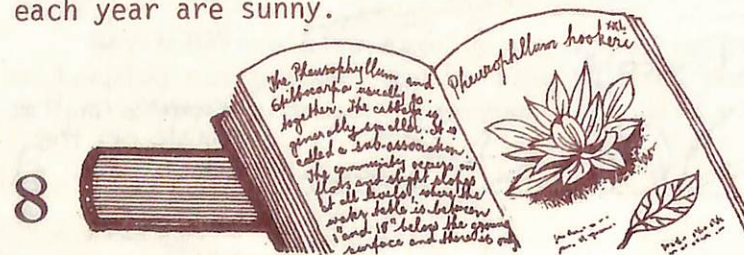 each year are sunny.
The Pleurophyllum and
Stilbocarpa usually go
together. The cabbage is
generally smaller. It is
called a sub-association.
The community occurs on
flats and slight slopes
at all levels, where the
water table is between
1" and 18" below the ground
surface and there is only
Pleurophllum hookeri
8